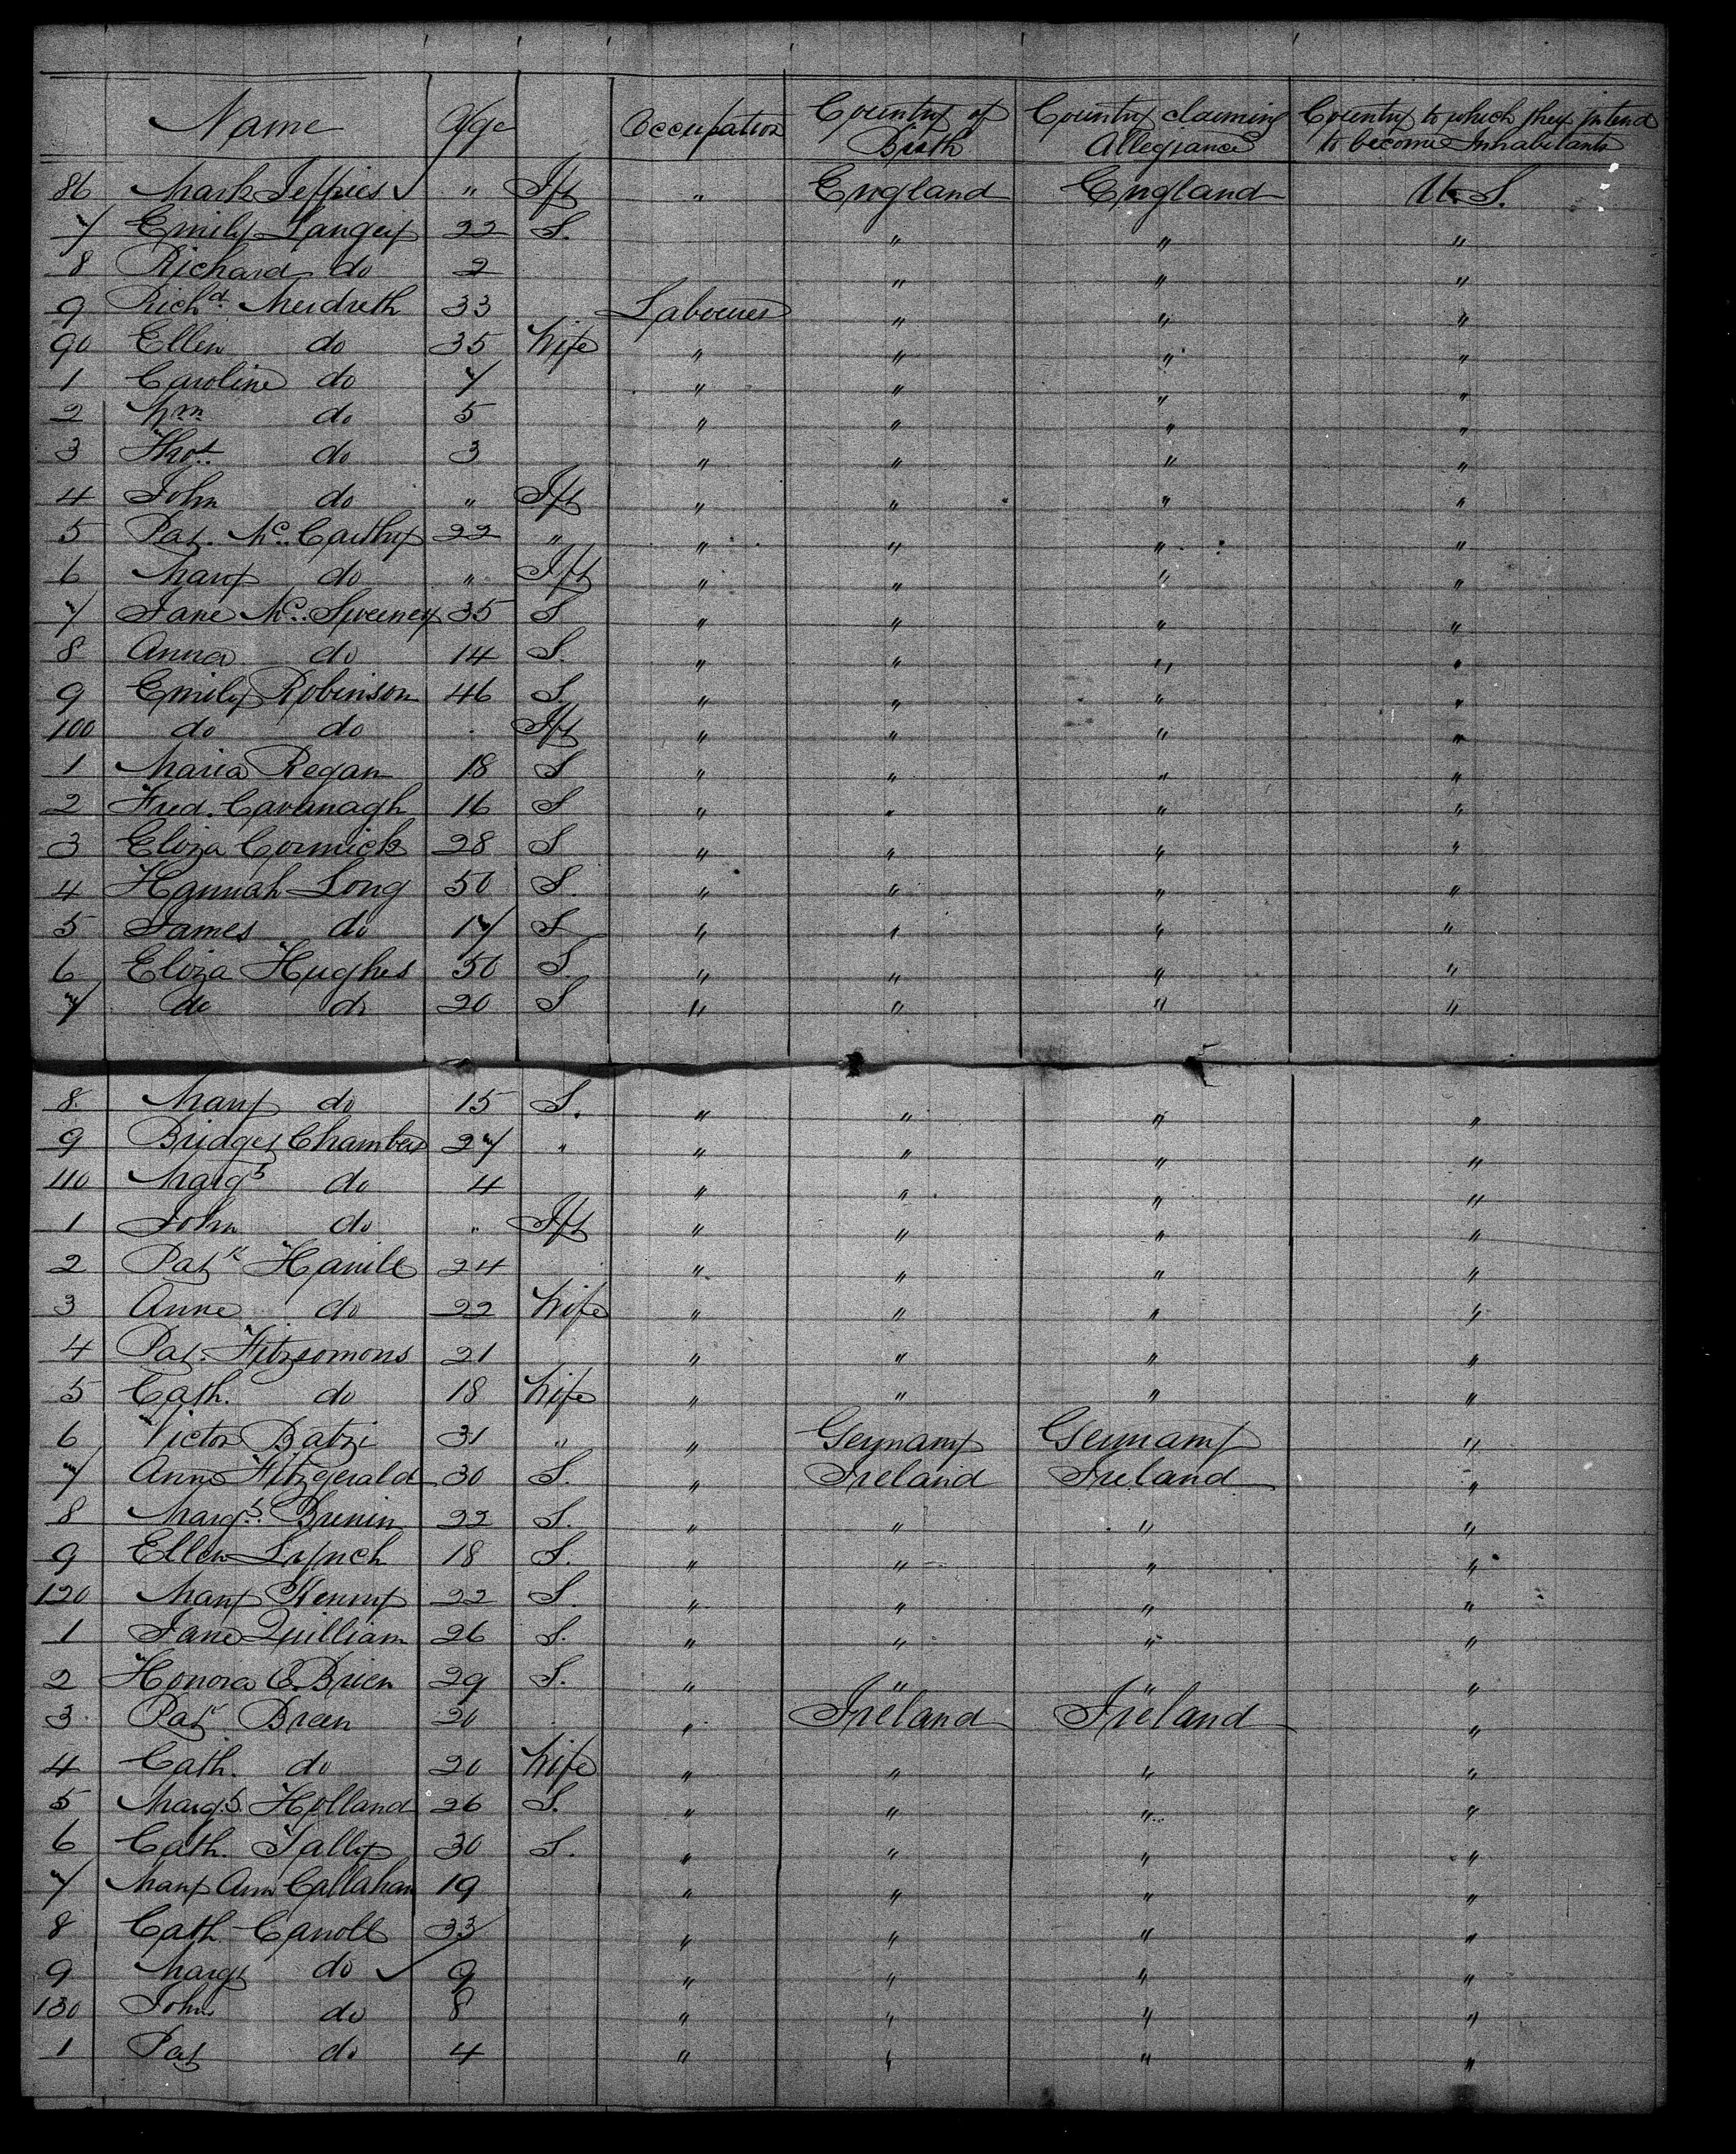 Name Age Occupation Country of Birth Country claiming Allegiance Country to which they intend to become Inhabitants
86 Mark Jeffries " Ift " England England U.S.
7 Emily Langey 22 S. " " "
8 Richard do 2 " " "
9 Richd. Meidreth 33 Labourer " " "
90 Ellen do 35 Wife " " " "
1 Caroline do 7 " " " "
2 Wm do 5 " " " "
3 Thos. do 3 " " " "
4 John do " Ift " " " "
5 Pat. Mc.Carthy 22 " " " " "
6 Mary do " Ift " " " "
7 Jane Mc.Sweeney 35 S " " " "
8 Anna do 14 S. " " " "
9 Emily Robinson 46 S. " " " "
100 do do . Ift " " " "
1 Maria Regan 18 S " " " "
2 Fred. Cavanagh 16 S " " " "
3 Eliza Cormick 28 S " " " "
4 Hannah Long 50 S. " " " "
5 James do 17 S " " " "
6 Eliza Hughes 50 S. " " " "
7 do do 20 S " " " "
8 Mary do 15 S. " " " "
9 Bridget Chambers 27 " " " " "
110 Margt do 4 " " " "
1 John do " Ift " " " "
2 Patk Hamill 24 " " " "
3 Anne do 22 Wife " " " "
4 Pat. Fitzsomons 21 " " " "
5 Cath. do 18 Wife " " " "
6 Victor Batzi 31 " " Germany Germany "
7 Anne Fitzgerald 30 S. " Ireland Ireland "
8 Margt. Brenin 22 S. " " " "
9 Ellen Lynch 18 S. " " " "
120 Mary Kenny 22 S. " " " "
1 Jane Quilliam 26 S. " " " "
2 Honora O.Brien 29 S. " " " "
3 Patk Breen 20 " Ireland Ireland "
4 Cath. do 20 Wife " " " "
5 Margt. Holland 26 S. " " " "
6 Cath. Tally 30 S. " " " "
7 Mary Ann Callahan 19 " " " "
8 Cath Carroll 33 " " " "
9 Margt do 9 " " " "
130 John do 8 " " " "
1 Pat do 4 " " " "